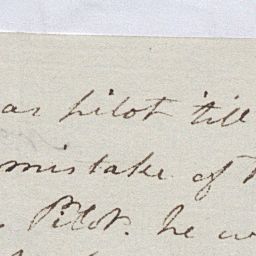 as pilot till
mistake of
Pilot. he